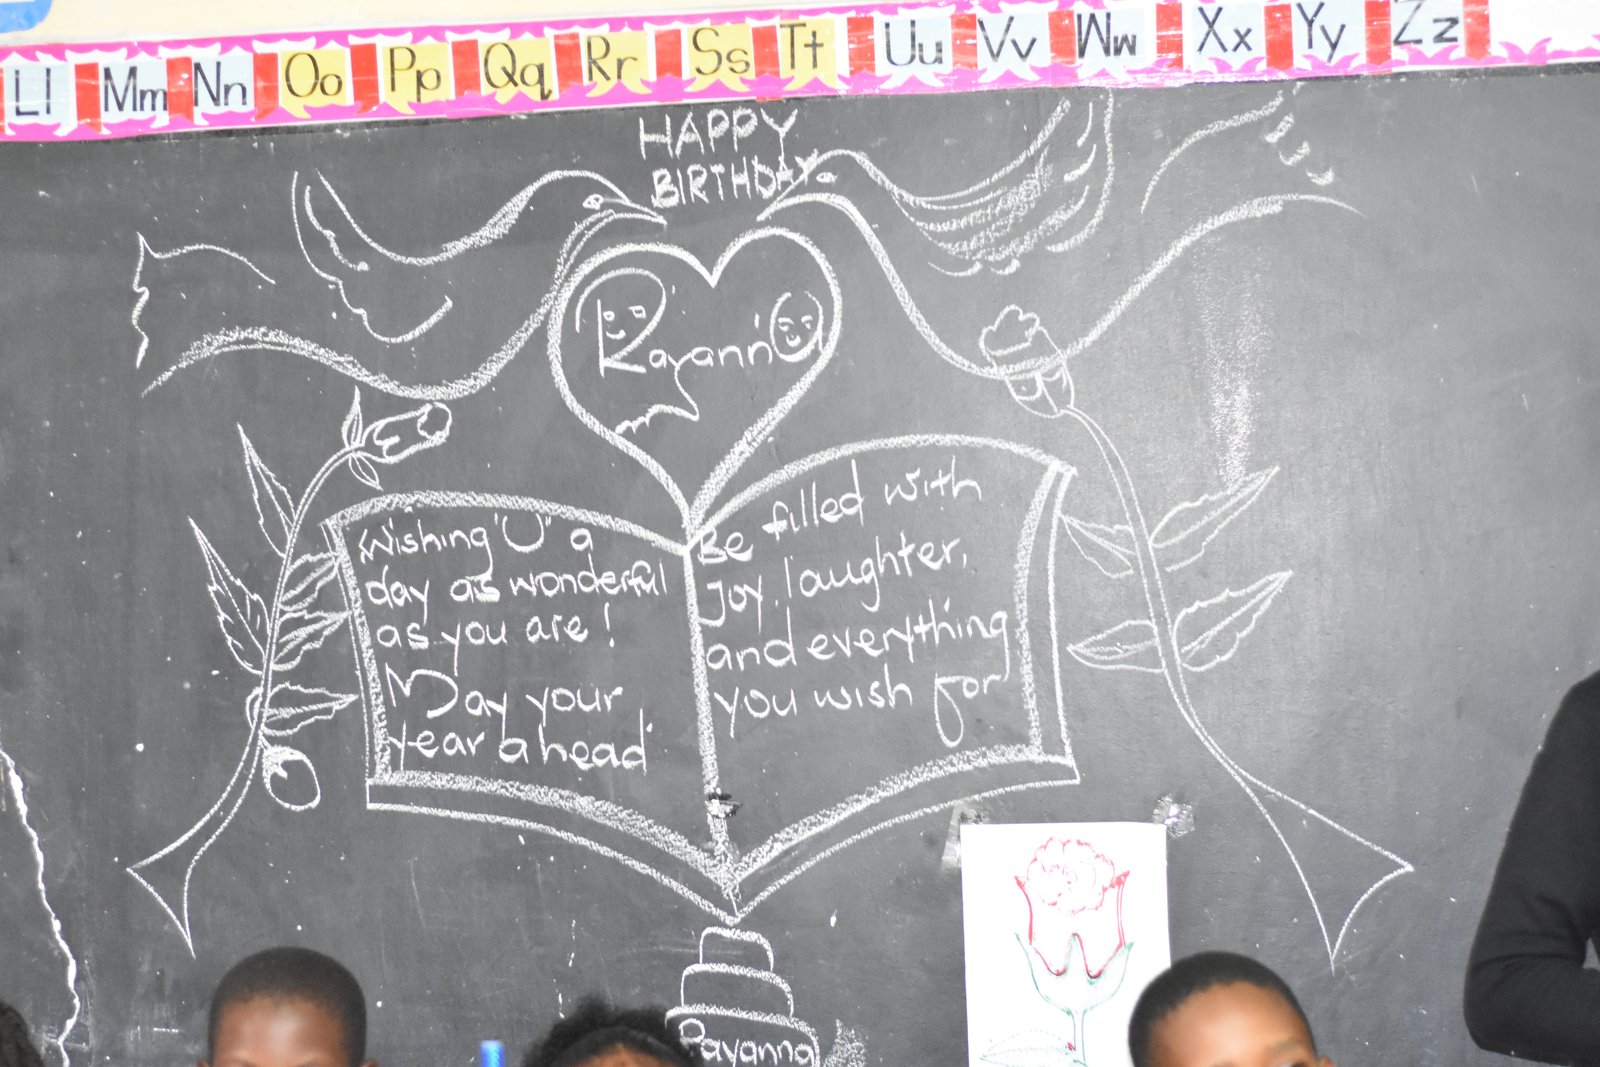 Ll Mm Nn Oo Pp Qq Rr Ss Tt Uu Vv Ww Xx Yy Zz
HAPPY
BIRTHDAY
Rayanna
Wishing "U" a
day as wonderful
as you are!
May your
year ahead
Be filled with
Joy, laughter,
and everything
you wish for
Rayanna